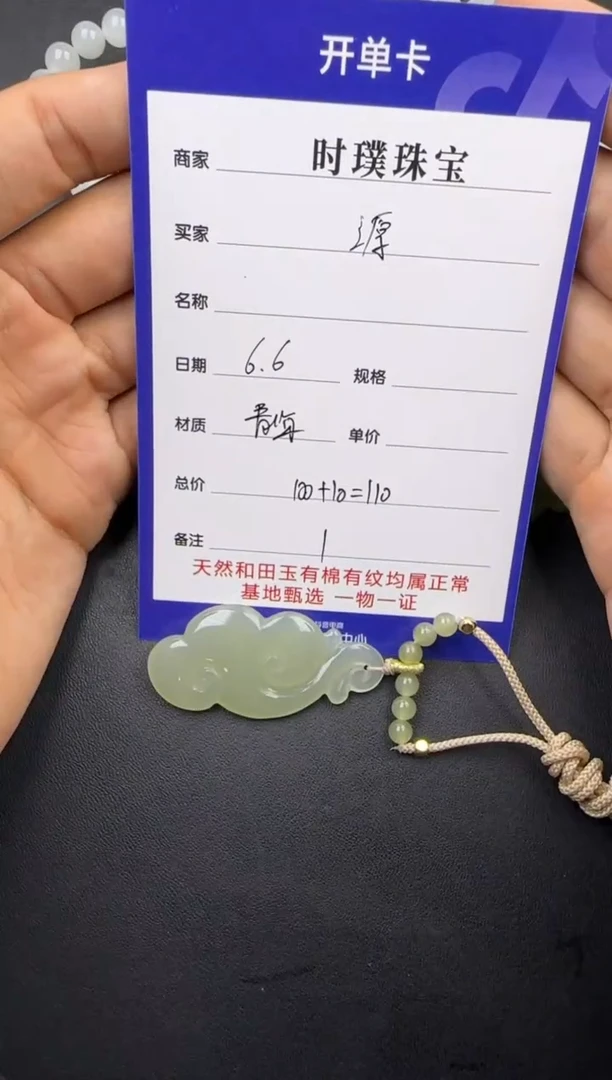 开单卡
商家 时璞珠宝
买家 源
名称
日期 6.6 规格
材质 青海 单价
总价 100+10=110
备注 1
天然和田玉有棉有纹均属正常
基地甄选 一物一证
抖音电商
中心